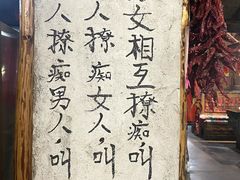 女相互撩痴叫
人撩痴女人,叫
人撩痴男人,叫